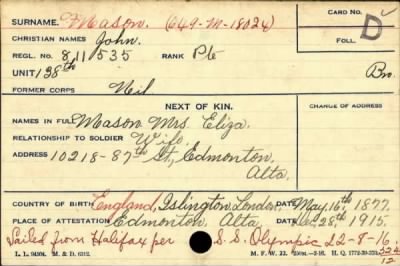 SURNAME. Mason. (649-M-18024) CARD NO.
CHRISTIAN NAMES John. FOLL. D
REGL. NO. 811535 RANK Pte
UNIT 138th Bn.
FORMER CORPS Nil
NEXT OF KIN. CHANGE OF ADDRESS
NAMES IN FULL Mason Mrs. Eliza.
RELATIONSHIP TO SOLDIER Wife.
ADDRESS 10218-87th St, Edmonton,
Alta.
COUNTRY OF BIRTH England, Islington, London DATE May, 16th 1877.
PLACE OF ATTESTATION Edmonton, Alta. DATE Dec. 28th, 1915.
Sailed from Halifax per S.S. Olympic 22-8-16.
L. L. 94504. M. & D. 6312. M. F. W. 22. H. Q. 1772-39-339